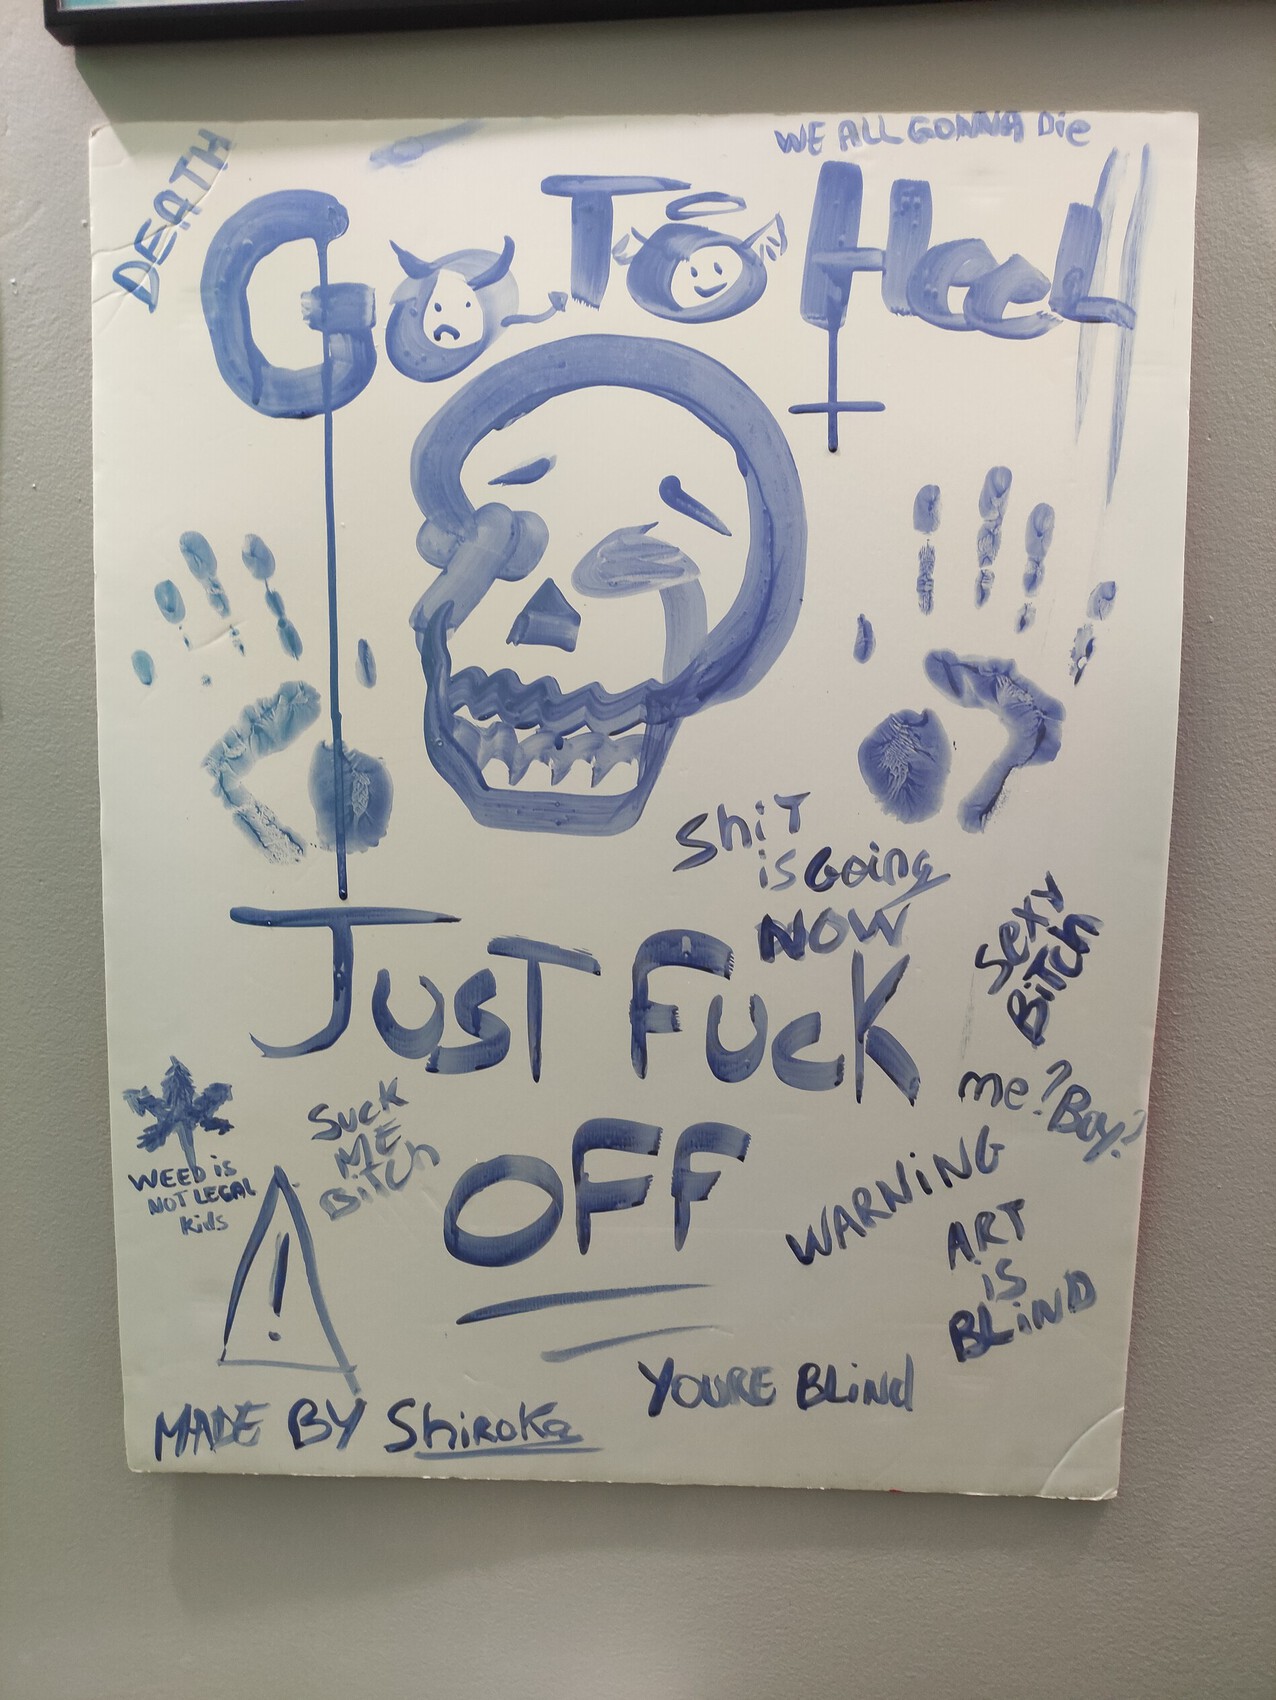 WE ALL GONNA Die
DEATH
Go To Heel
Shit
is Going
NOW
JUST FUCK
OFF
Sexy
Bitch
me? Boy?
Suck
ME
Bitch
WEED is
NOT LEGAL
kids
!
WARNING
ART
iS
BLiND
YOURE BLiNd
MADE BY Shiroka